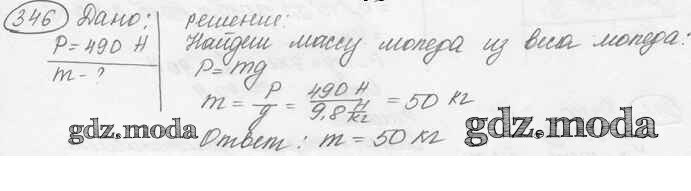 346 Дано:
P = 490 Н
m - ?
решение:
Найдем массу мопеда из веса мопеда:
P = mg
m = P/g = 490 Н / 9,8 Н/кг = 50 кг
Ответ: m = 50 кг
gdz.moda
gdz.moda